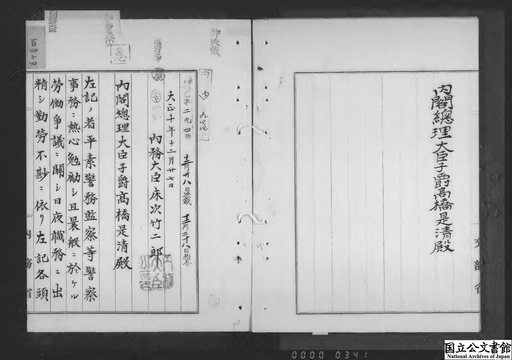 内閣總理大臣子爵髙橋是清殿
文部省
大正十年十二月廿七日
內務大臣床次竹二郎
內閣總理大臣子爵髙橋是清殿
左記ノ者平素警務監察等警察
事務ニ熱心勉勵シ且最般ニ於ケル
勞働爭議ニ關シ日夜職務ニ出
精シ勤勞不尠ニ依リ左記各頭
內務省
百四十四
0000 0341
国立公文書館
National Archives of Japan